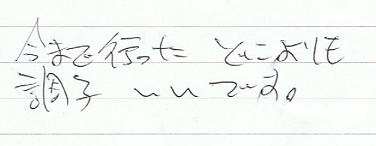 今まで行った どこよりも
調子 いいです。